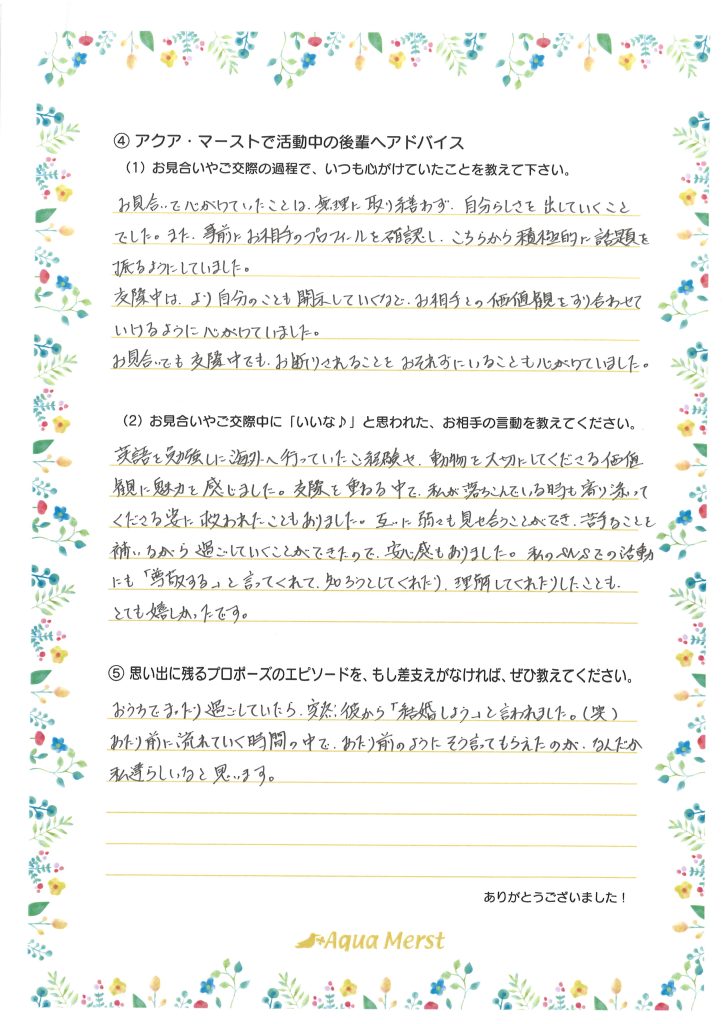 ④ アクア・マーストで活動中の後輩へアドバイス
（1）お見合いやご交際の過程で、いつも心がけていたことを教えて下さい。
お見合いで心がけていたことは、無理に取り繕わず、自分らしさを出していくこと
でした。また、事前にお相手のプロフィールを確認し、こちらから積極的に話題を
振るようにしていました。
交際中は、より自分のことも開示していくなど、お相手との価値観をすり合わせて
いけるように心がけていました。
お見合いでも交際中でも、お断りされることをおそれずにいることも心がけていました。
（2）お見合いやご交際中に「いいな♪」と思われた、お相手の言動を教えてください。
英語を勉強しに海外へ行っていたご経験や、動物を大切にしてくださる価値
観に魅力を感じました。交際を重ねる中で、私が落ちこんでいる時も寄り添って
くださる姿に救われたこともありました。互いに弱さも見せ合うことができ、苦手なことを
補いながら過ごしていくことができたので、安心感もありました。私のSNSでの活動
にも「尊敬する」と言ってくれて、知ろうとしてくれたり、理解してくれたりしたことも、
とても嬉しかったです。
⑤ 思い出に残るプロポーズのエピソードを、もし差支えがなければ、ぜひ教えてください。
おうちでまったり過ごしていたら、突然、彼から「結婚しよう」と言われました。（笑）
あたり前に流れていく時間の中で、あたり前のようにそう言ってもらえたのが、なんだか
私達らしいなと思います。
ありがとうございました！
Aqua Merst